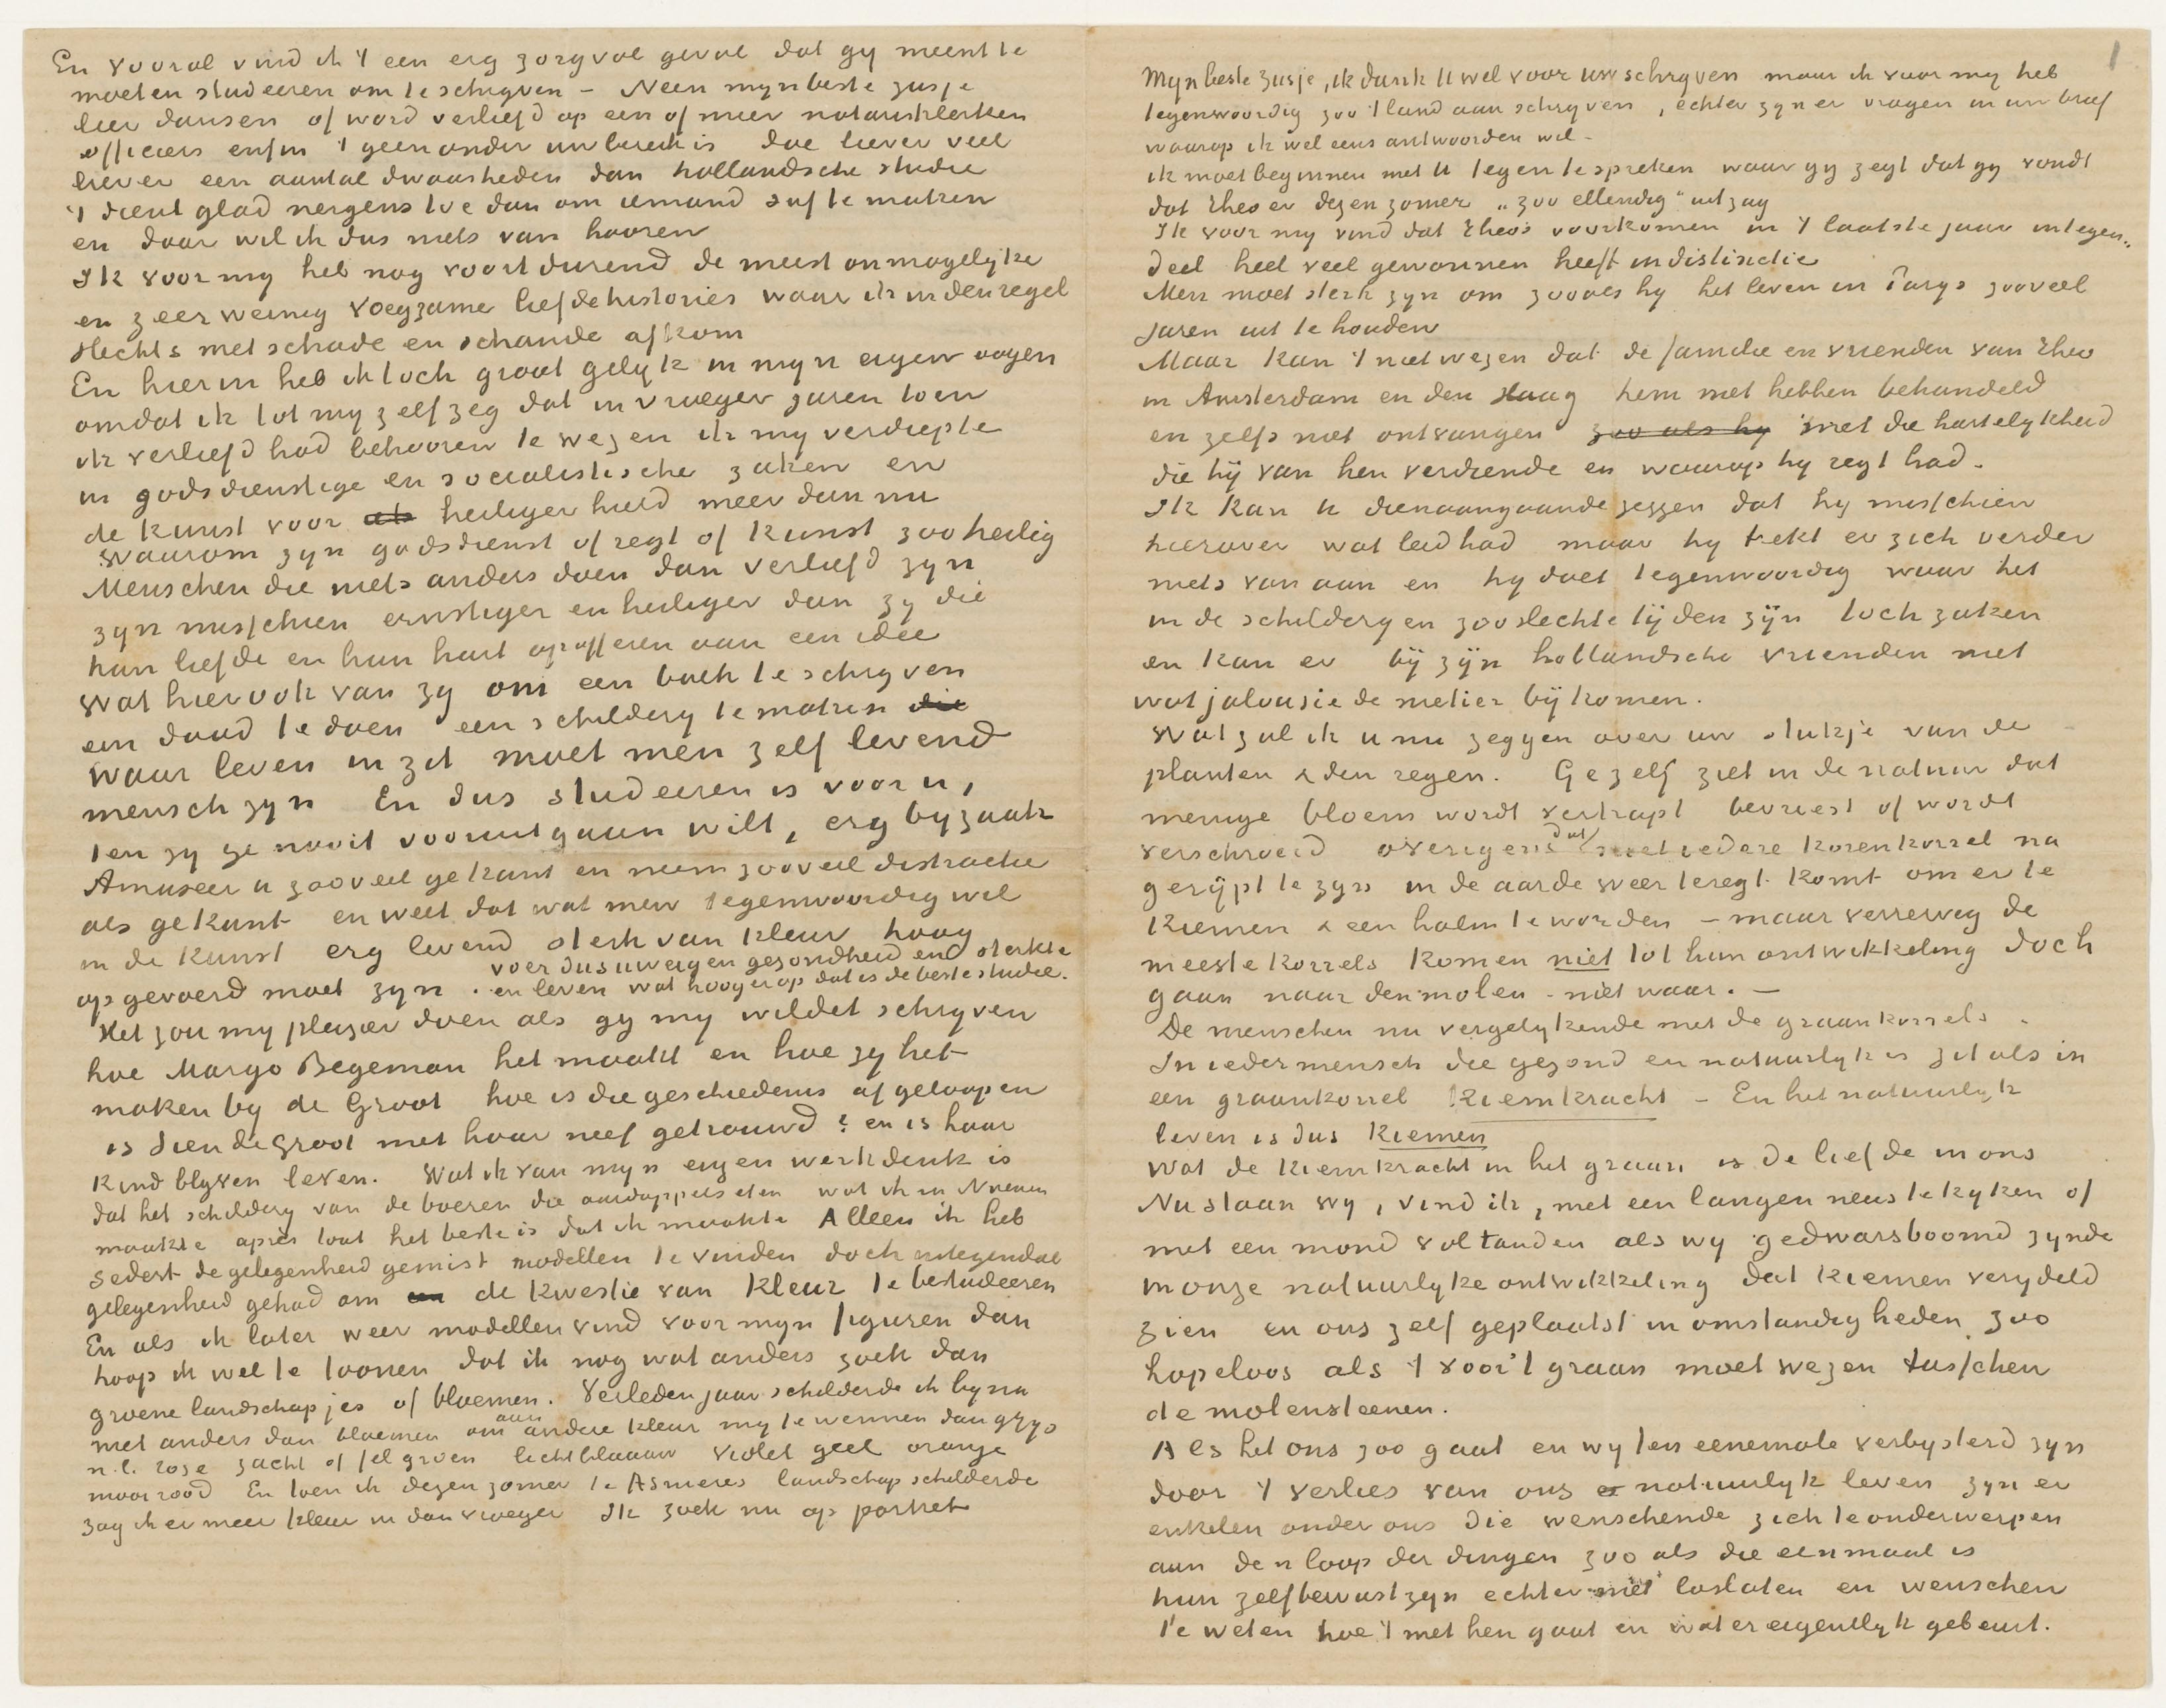 En vooral vind ik 't een erg zorgvol geval dat gij meent te
moeten studeeren om te schrijven – Neen mijn beste zusje
leer dansen of word verliefd op een of meer notarisklerken
officiers enfin 't geen onder uw bereik is doe liever veel
liever een aantal dwaasheden dan hollandsche studie
't dient glad nergens toe dan om iemand suf te maken
en daar wil ik dus niets van hooren
Ik voor mij heb nog voortdurend de meest onmogelijke
en zeer weinig voegzame liefdehistories waar ik in den regel
slechts met schade en schande afkom
En hierin heb ik toch groot gelijk in mijn eigen oogen
omdat ik tot mij zelf zeg dat in vroeger jaren toen
ik verliefd had behooren te wezen ik mij verdiepte
in godsdienstige en socialistische zaken en
de kunst voor als heiliger hield meer dan nu
Waarom zijn godsdienst of regt of kunst zoo heilig
Menschen die niets anders doen dan verliefd zijn
zijn misschien ernstiger en heiliger dan zij die
hun liefde en hun hart opofferen aan een idee
Wat hiervook van zij om een boek te schrijven
een daad te doen een schilderij te maken die
waar leven in zit moet men zelf levend
mensch zijn En dus studeeren is voor u,
ten zij ge nooit vooruitgaan wilt, erg bijzaak
Amuseer u zooveel ge kunt en neem zooveel distractie
als ge kunt en weet dat wat men tegenwoordig wil
in de kunst erg levend sterk van kleur hoog
opgevoerd moet zijn. voer dus uw eigen gezondheid en sterkte
en leven wat hooger op dat is de beste studie.
Het zou mij pleizier doen als gij mij wildet schrijven
hoe Margo Begeman het maakt en hoe zij het
maken bij de Groot hoe is die geschiedenis afgeloopen
is Sien de Groot met haar neef getrouwd? en is haar
kind blijven leven. Wat ik van mijn eigen werk denk is
dat het schilderij van de boeren die aardappels eten wat ik in Nuenen
maakte après tout het beste is dat ik maakte Alleen ik heb
sedert de gelegenheid gemist modellen te vinden doch integendeel
gelegenheid gehad om de kwestie van kleur te bestudeeren
En als ik later weer modellen vind voor mijn figuren dan
hoop ik wel te toonen dat ik nog wat anders zoek dan
groene landschapjes of bloemen. Verleden jaar schilderde ik bijna
niet anders dan bloemen om aan andere kleur mij te wennen dan grijs
n.l. rose zacht of fel groen lichtblaauw violet geel oranje
mooi rood En toen ik dezen zomer te Asnieres landschap schilderde
zag ik er meer kleur in dan vroeger Ik zoek nu op portret
1
Mijn beste zusje, ik dank U wel voor uw schrijven maar ik voor mij heb
tegenwoordig zoo 't land aan schrijven, echter zijn er vragen in uw brief
waarop ik wel eens antwoorden wil –
ik moet beginnen met U tegen te spreken waar gij zegt dat gij vondt
dat Theo er dezen zomer „zoo ellendig" uit zag
Ik voor mij vind dat Theo's voorkomen in 't laatste jaar integen-
deel heel veel gewonnen heeft in distinctie
Men moet sterk zijn om zooals hij het leven in Parijs zooveel
jaren uit te houden
Maar kan 't niet wezen dat de familie en vrienden van Theo
in Amsterdam en den Haag hem niet hebben behandeld
en zelfs niet ontvangen zoo als hij met die hartelijkheid
die hij van hen verdiende en waarop hij regt had.
Ik kan u dienaangaande zeggen dat hij misschien
hierover wat leed had maar hij trekt er zich verder
niets van aan en hij doet tegenwoordig waar het
in de schilderijen zoo slechte tijden zijn toch zaken
en kan er bij zijn hollandsche vrienden niet
wat jalousie de metier bijkomen.
Wat zal ik u nu zeggen over uw stukje van de
planten & den regen. Ge zelf ziet in de natuur dat
menige bloem wordt vertrapt bevriest of wordt
verschroeid overigens dat niet iedere korenkorrel na
gerijpt te zijn in de aarde weer teregt komt om er te
kiemen & een halm te worden – maar verreweg de
meeste korrels komen niet tot hun ontwikkeling doch
gaan naar den molen – niet waar. –
De menschen nu vergelijkende met de graankorrels.
In ieder mensch die gezond en natuurlijk is zit als in
een graankorrel kiemkracht – En het natuurlijk
leven is dus kiemen
Wat de kiemkracht in het graan is de liefde in ons
Nu staan wij, vind ik, met een langen neus te kijken of
met een mond vol tanden als wij gedwarsboomd zijnde
in onze natuurlijke ontwikkeling dat kiemen verijdeld
zien en ons zelf geplaatst in omstandigheden zoo
hopeloos als 't voor 't graan moet wezen tusschen
de molensteenen.
Als het ons zoo gaat en wij ten eenemale verbijsterd zijn
door 't verlies van ons natuurlijk leven zijn er
enkelen onder ons die wenschende zich te onderwerpen
aan den loop der dingen zoo als die eenmaal is
hun zelfbewustzijn echter niet loslaten en wenschen
te weten hoe 't met hen gaat en wat er eigentlijk gebeurt.